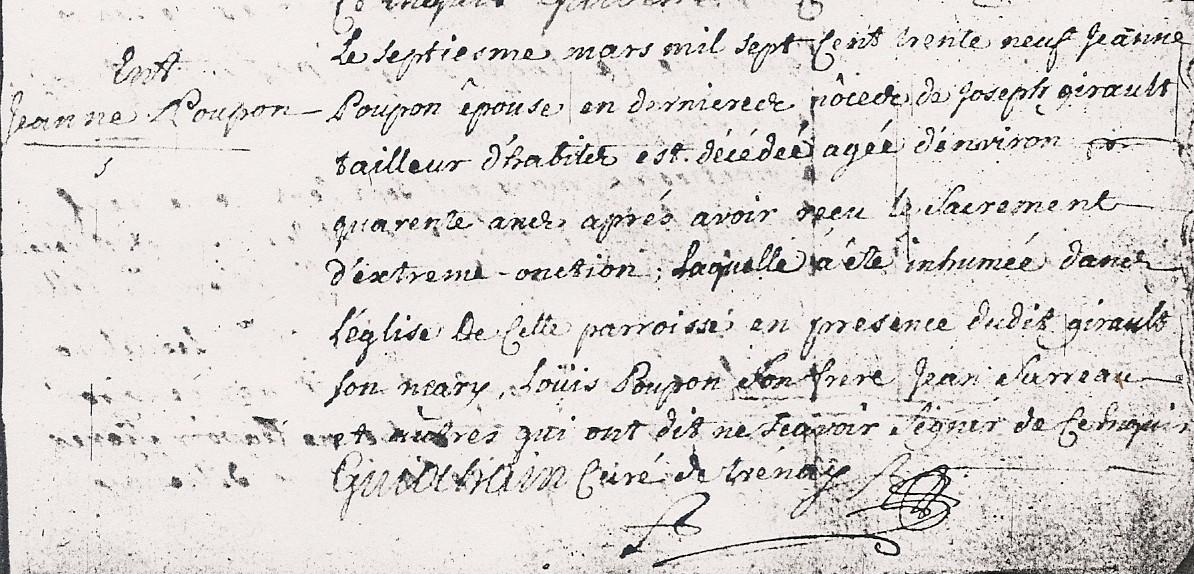 Le septiesme mars mil sept cent trente neuf Jeanne
Ent
Jeanne Poupon
Poupon épouse en dernieres nôces de Joseph girault
tailleur d'habits est décédée agée d'environ
quarente ans aprés avoir reçu le Sacrement
d'extreme-onction; Laquelle a été inhumée dans
l'église de cette parroisse en presence dudit girault
son mary, Loüis Poupon son frere Jean Surreau
et autres qui ont dit ne sçavoir signer de ce enquis
curé de trénay